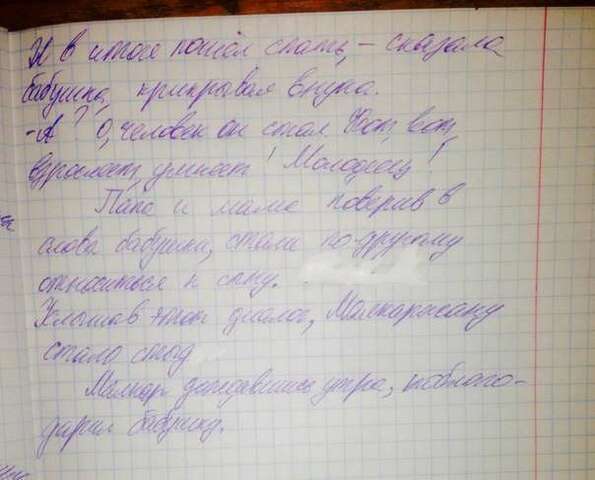 И в итоге пошёл спать, – сказала
бабушка, прикрывая внука.
-А? О, человек он стал. Вот, вот,
взрослеет, умнеет! Молодец!
Папа и мама поверив в
слова бабушки, стали по-другому
относиться к сыну.
Услышав этот диалог,
стало стыд
дождавшись утра, поблаго-
дарил бабушку.